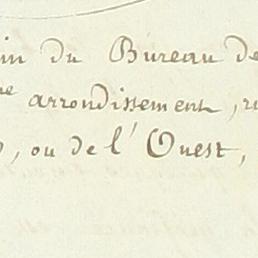 in du Bureau de
me arrondissement,
, ou de l'Ouest,